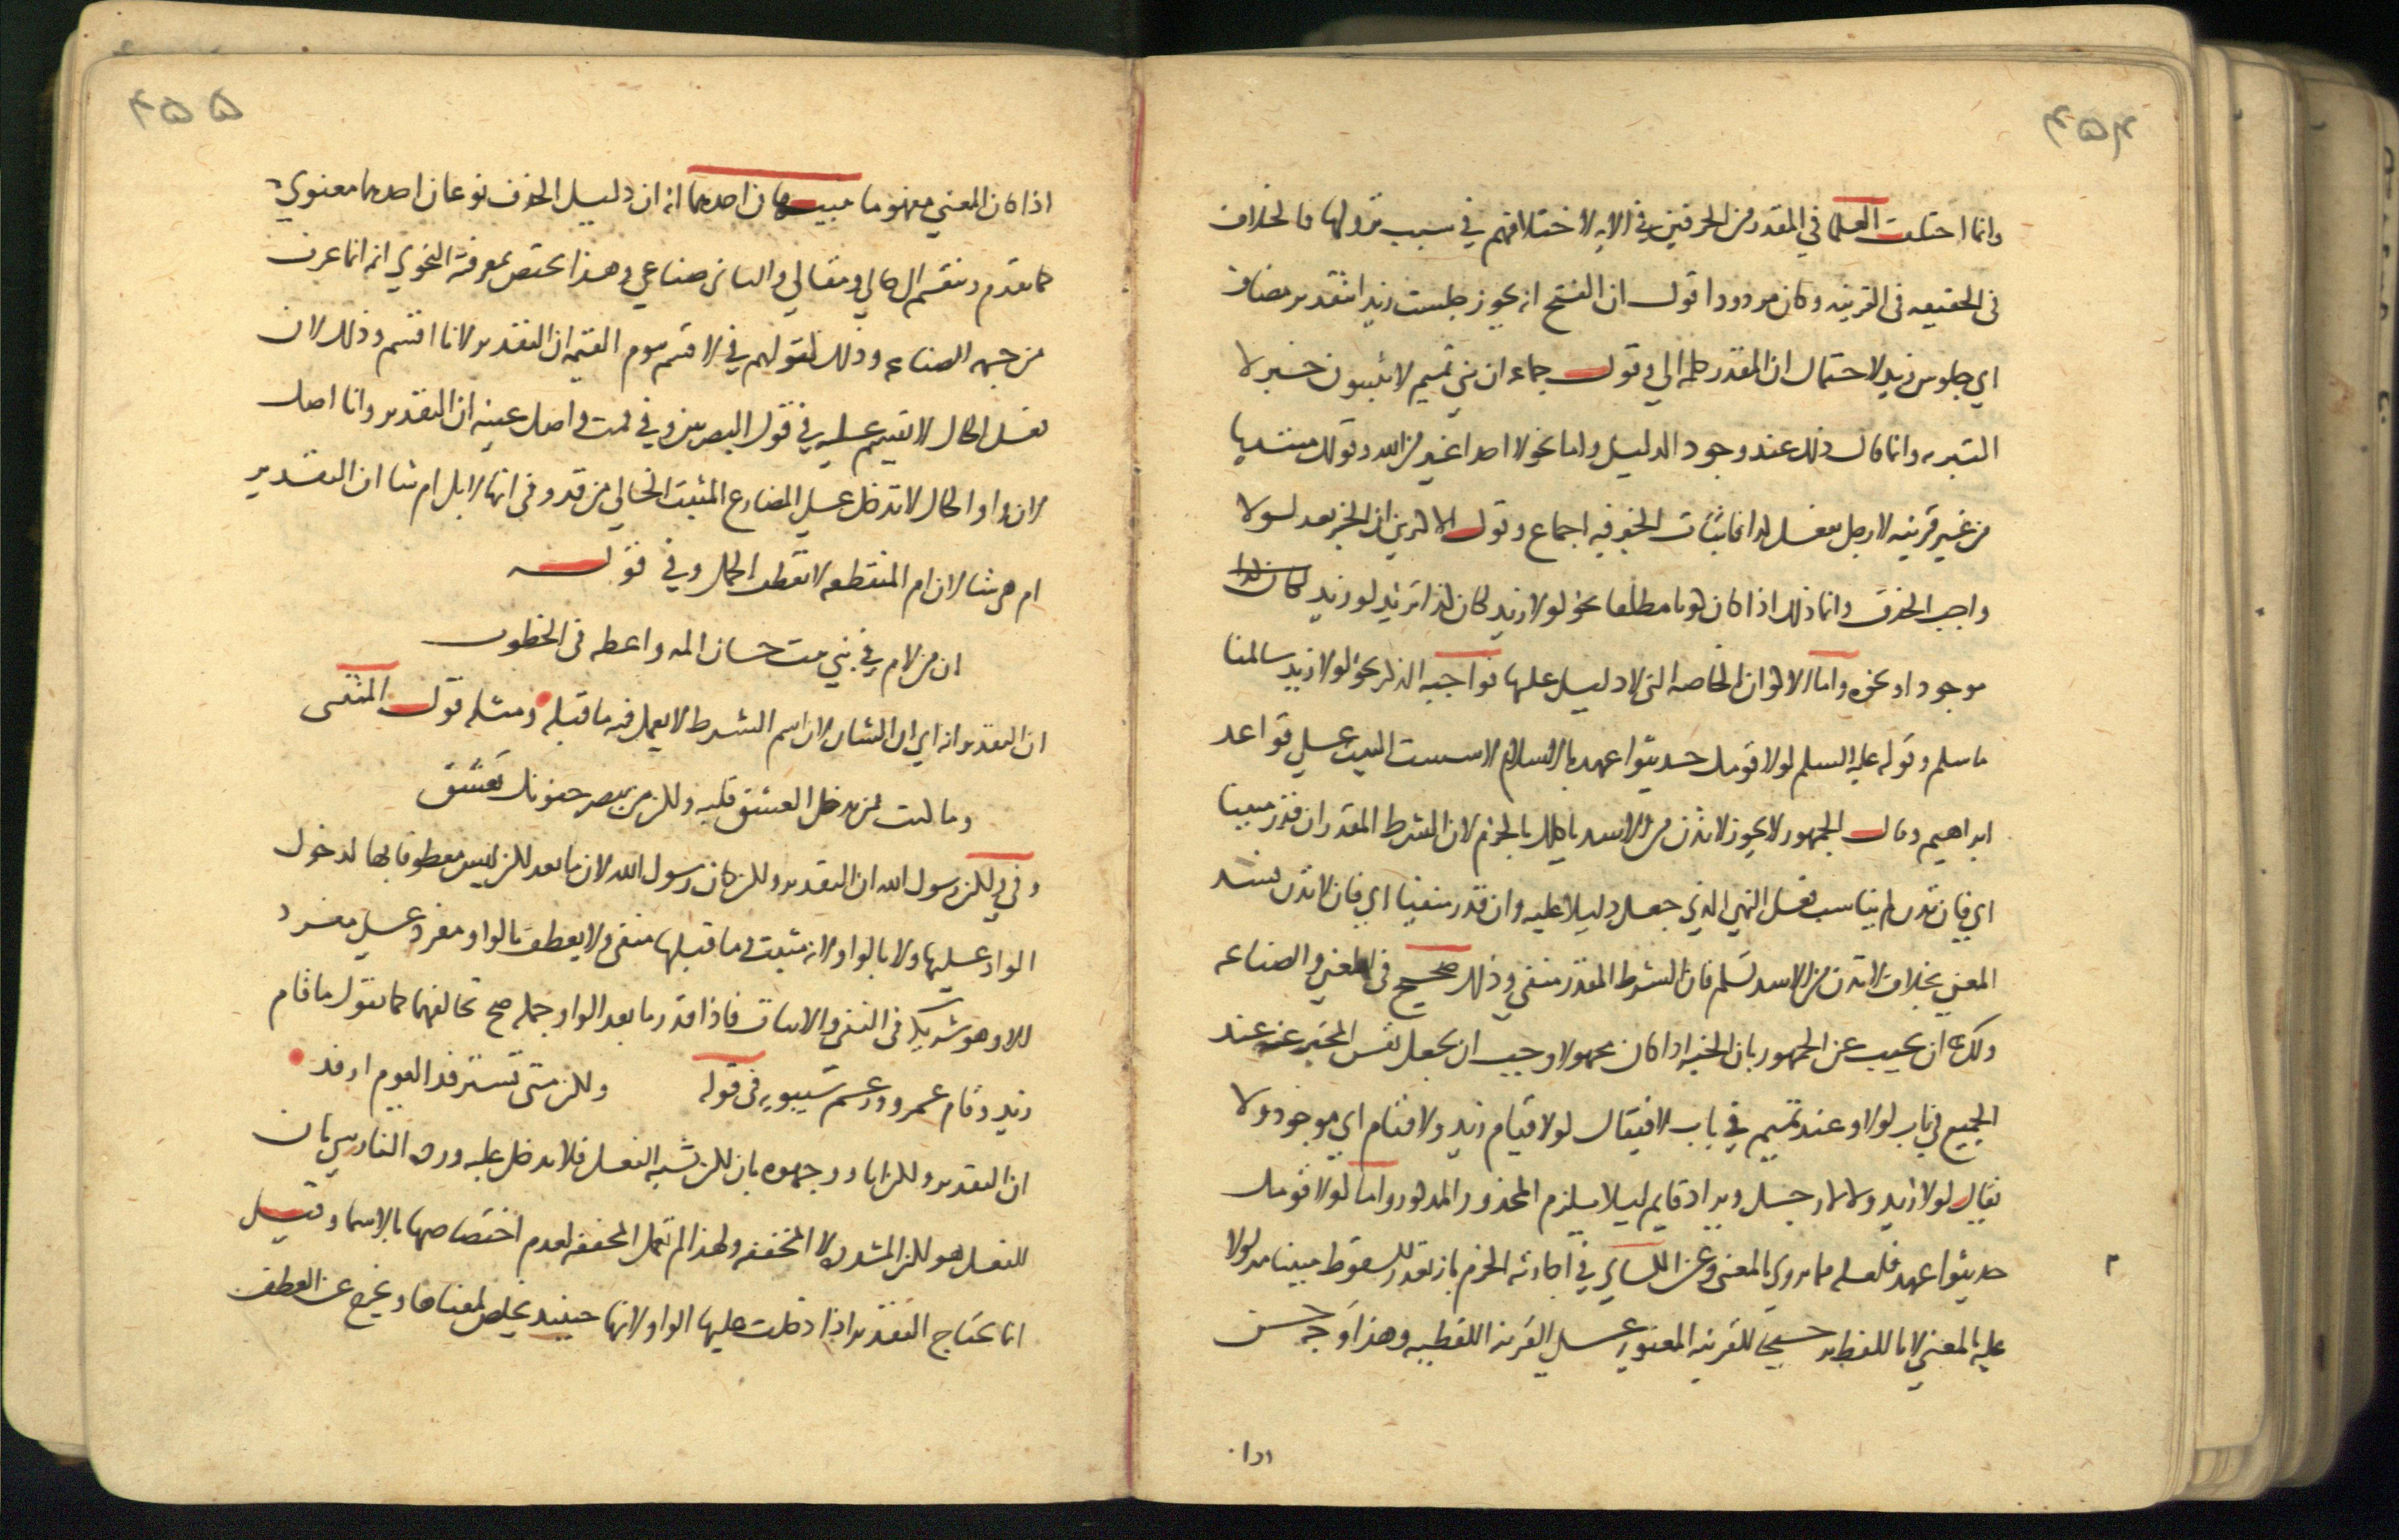 ۴۵۴
وانما اختلف العلما في المقدر من الحرفين في الايه لاختلافهم في سبب نزولها فالخلاف
في الحقيقه في القرينه وكان مردودا قول ابي الفتح انه يجوز جلست زيدا بتقدير مضاف
اي جلوس زيد لاحتمال ان المقدر كلمة الي وقول جماعه ان بني تميم لا يثبتون خبر لا
التبريه وانما ذلك عند وجود الدليل واما نحو لا احد اغير من الله وقولك مبتديا
من غير قرينه لا رجل يفعل كذا فاثبات الخبر فيه اجماع وقول الاكثرين ان الخبر بعد لولا
واجب الحذف وانما ذلك اذا كان كونا مطلقا نحو لولا زيد لكان كذا تريد لولا زيد
موجود او نحوه واما الاكوان الخاصه التي لا دليل عليها فواجبه الذكر نحو لولا زيد سالمنا
ما سلم وقوله عليه السلم لولا قومك حديثوا عهد بالاسلام لاسست البيت علي قواعد
ابراهيم وقال الجمهور لا يجوز لا تدن من الاسد ياكلك بالجزم لان الشرط المقدر ان قدر مثبتا
اي فان تدن لم يناسب فعل النهي الذي جعل دليلا عليه وان قدر منفيا اي فان لا تدن فسد
المعني بخلاف لا تدن من الاسد تسلم فان الشرط المقدر منفي وذلك صحيح في المعني والصناعه
ولك ان تجيب عن الجمهور بان الخبر اذا كان مجهولا وجب ان يجعل نفس المخبر عنه عند
الجميع في باب لولا وعند تميم في باب لا فيقال لولا قيام زيد ولا قيام اي موجود ولا
يقال لولا زيد ولا رجل ويراد قايم ليلا يلزم المحذور المذكور واما لولا قومك
حديثوا عهد فلعله مما يروي بالمعني وعن الكساي في اجازته الجزم بانه يقدر الشرط مثبتا مدلولا
عليه بالمعني لا باللفظ ترجيحا للقرينه المعنويه علي القرينه اللفظيه وهذا وجه حسن
اذا
۴۵۵
اذا كان المعني مفهوما تنبيهان احدهما ان دليل الحذف نوعان احدهما معنوي
كما تقدم وينقسم الي حالي ومقالي والثاني صناعي وهذا يختص بمعرفته النحوي انه انما عرف
من جهه الصناعه وذلك لقولهم في لا اقسم بيوم القيمه ان التقدير لانا اقسم وذلك لان
فعل الحال لا يقسم عليه في قول البصريين وفي قمت واصك عينه ان التقدير وانا اصك
لان واو الحال لا تدخل علي المضارع المثبت الخالي من قد وفي انها لابل ام شا ان التقدير
ام هي شا لان ام المنقطعه لا تعطف الا الجمل وفي قوله
ان من لام في بني بنت حسان المه واعصه في الخطوب
ان التقدير انه اي ان الشان لان اسم الشرط لا يعمل فيه ما قبله ومثله قول المتنبي
وما كنت ممن يدخل العشق قلبه ولكن من يبصر جفونك يعشق
وفي ولكن رسول الله ان التقدير ولكن كان رسول الله لان ما بعد لكن ليس معطوفا بها لدخول
الواو عليها ولا بالواو لانه مثبت وما قبلها منفي ولا يعطف بالواو مفرد علي مفرد
الا وهو شريكه في النفي والاثبات فاذا قدر ما بعد الواو جمله صح تخالفهما كما تقول ما قام
زيد وقام عمرو وزعم سيبويه في قوله ولكن متي تسترفد القوم ارفد
ان التقدير ولكن انا ووجهوه بان لكن تشبه الفعل فلا تدخل عليه ورده الفارسي بان
المشبه بالفعل هو لكن المشدده لا المخففه ولهذا لم تعمل المخففه لعدم اختصاصها بالاسما وقيل
انما يحتاج التقدير اذا دخلت عليها الواو لانها حينيذ تخلص لمعناها وتخرج عن العطف